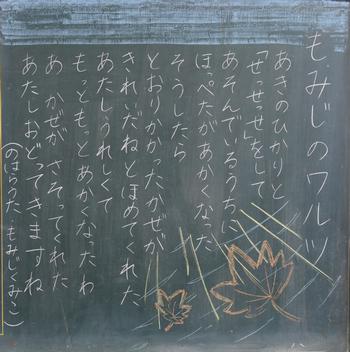 もみじのワルツ
あきのひかりと
「せっせっせ」をして
あそんでいるうちに
ほっぺたがあかくなった
そうしたら
とおりかかったかぜが
きれいだねとほめてくれた
あたしうれしくて
もっともっとあかくなったわ
あ かぜが さそってくれた
あたしおどってきますね
(のはらうた・もみじくみこ)